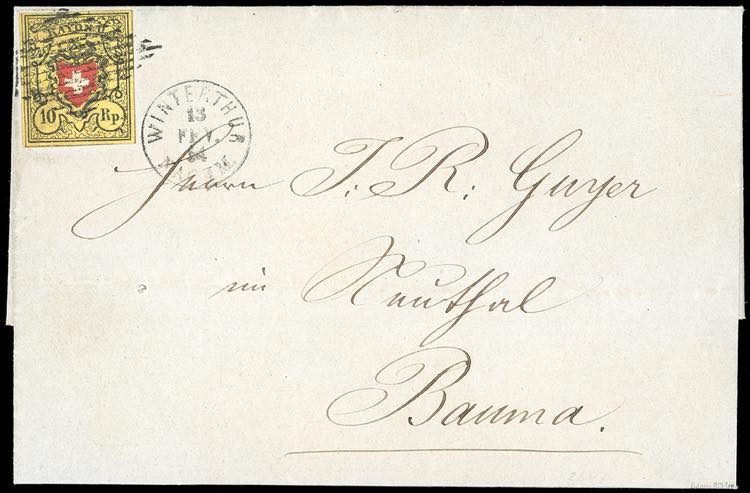 RAYON II
10 Rp.
WINTERTHUR
13
FEV.
54
Herrn J: R: Guyer
im Neuthal
Bauma.